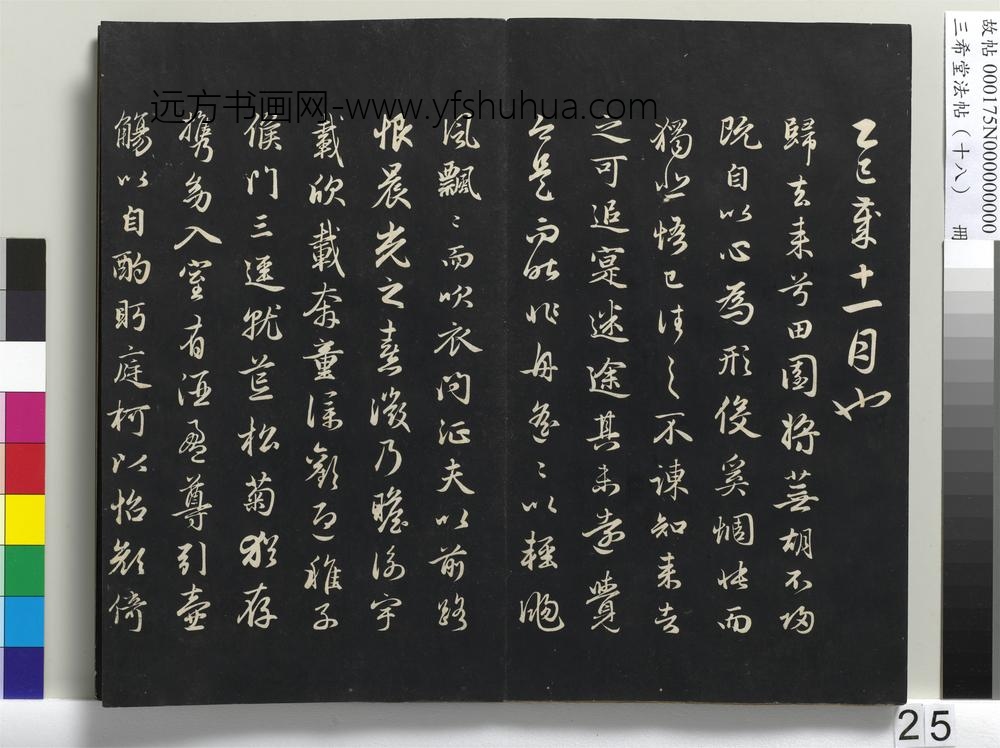 乙巳歲十一月也
歸去来兮田園将蕪胡不歸
既自以心為形役奚惆悵而
獨悲悟已往之不諫知来者
之可追寔迷途其未遠覺
今是而昨非舟遥〻以輕颺
風飄〻而吹衣问征夫以前路
恨晨光之熹微乃瞻衡宇
載欣載奔童僕歡迎稚子
候门三逕就荒松菊猶存
攜幼入室有酒盈尊引壺
觴以自酌眄庭柯以怡顔倚
远方书画网-www.yfshuhua.com
故帖 000175N000000000
三希堂法帖（十八） 冊
25